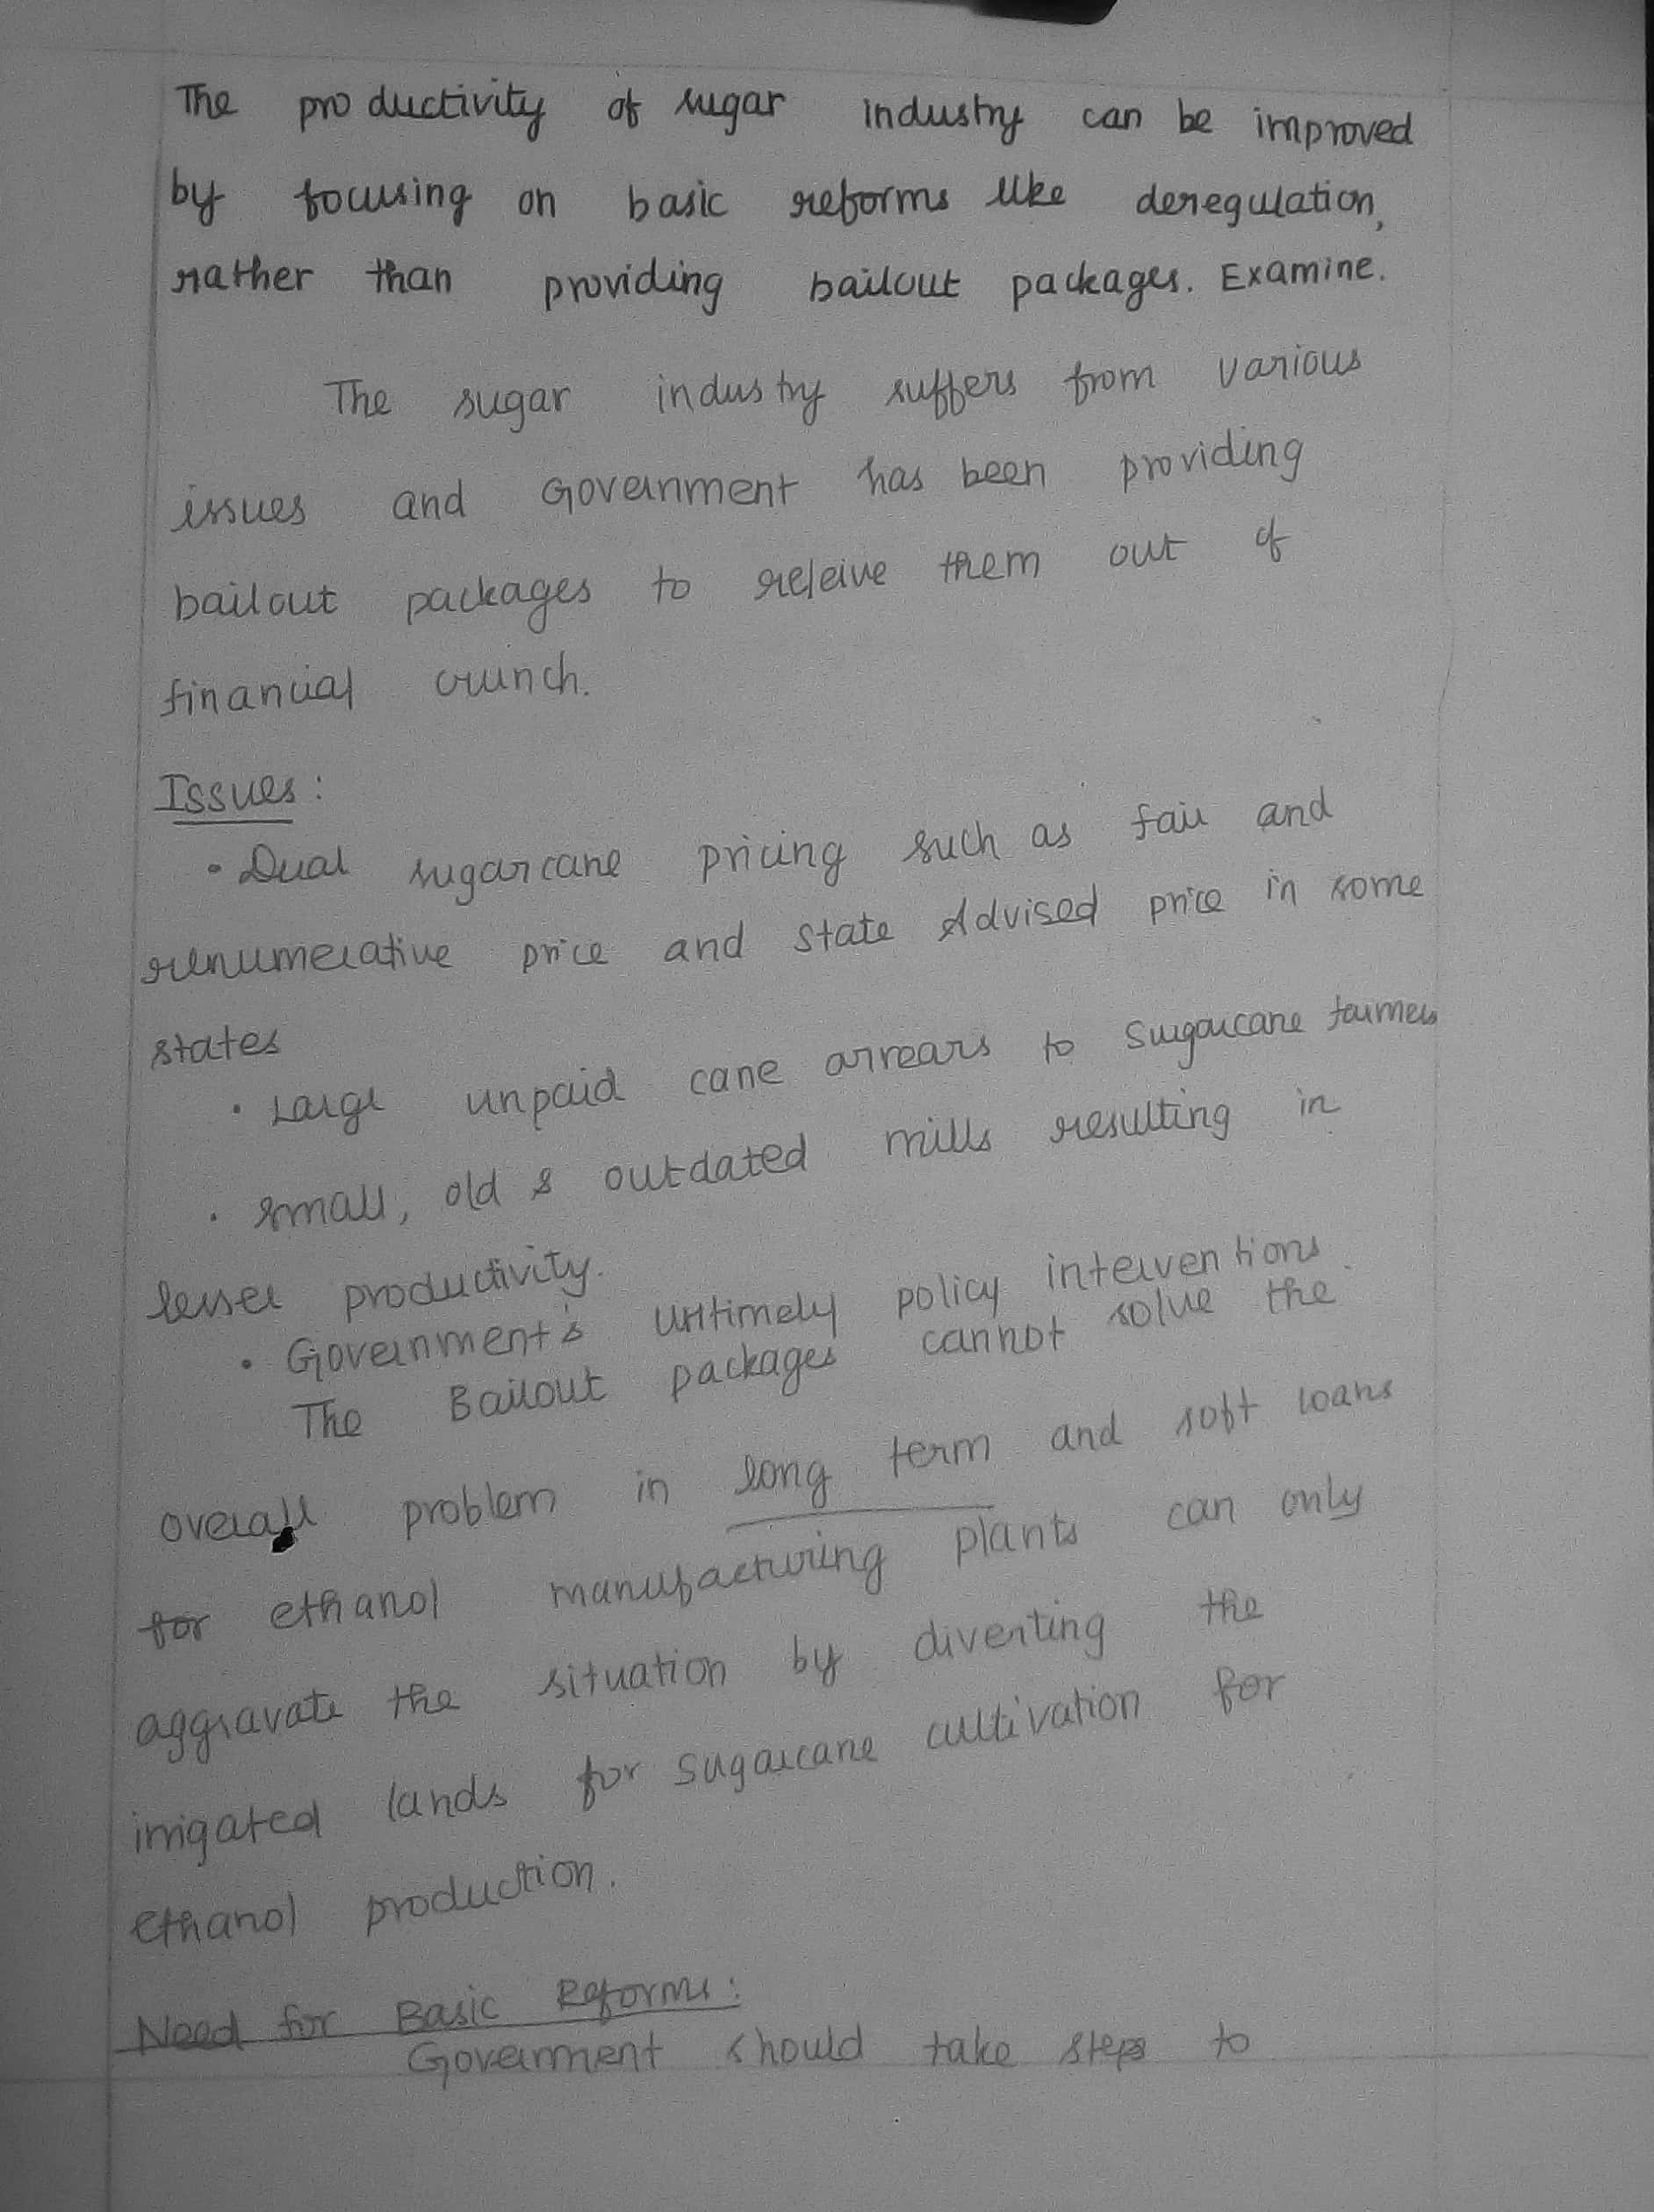 The productivity of sugar industry can be improved
by focusing on basic reforms like deregulation,
rather than providing bailout packages. Examine.
The sugar industry suffers from various
issues and Government has been providing
bailout packages to releive them out of
financial crunch.
Issues:
• Dual sugarcane pricing such as fair and
renumerative price and state Advised price in some
states
• Large unpaid cane arrears to sugarcane farmers
• small, old & outdated mills resulting in
lesser productivity.
• Government's untimely policy interventions.
The Bailout packages cannot solve the
overall problem in long term and soft loans
for ethanol manufacturing plants can only
aggravate the situation by diverting the
irrigated lands for sugarcane cultivation for
ethanol production.
Need for Basic Reforms:
Government should take steps to